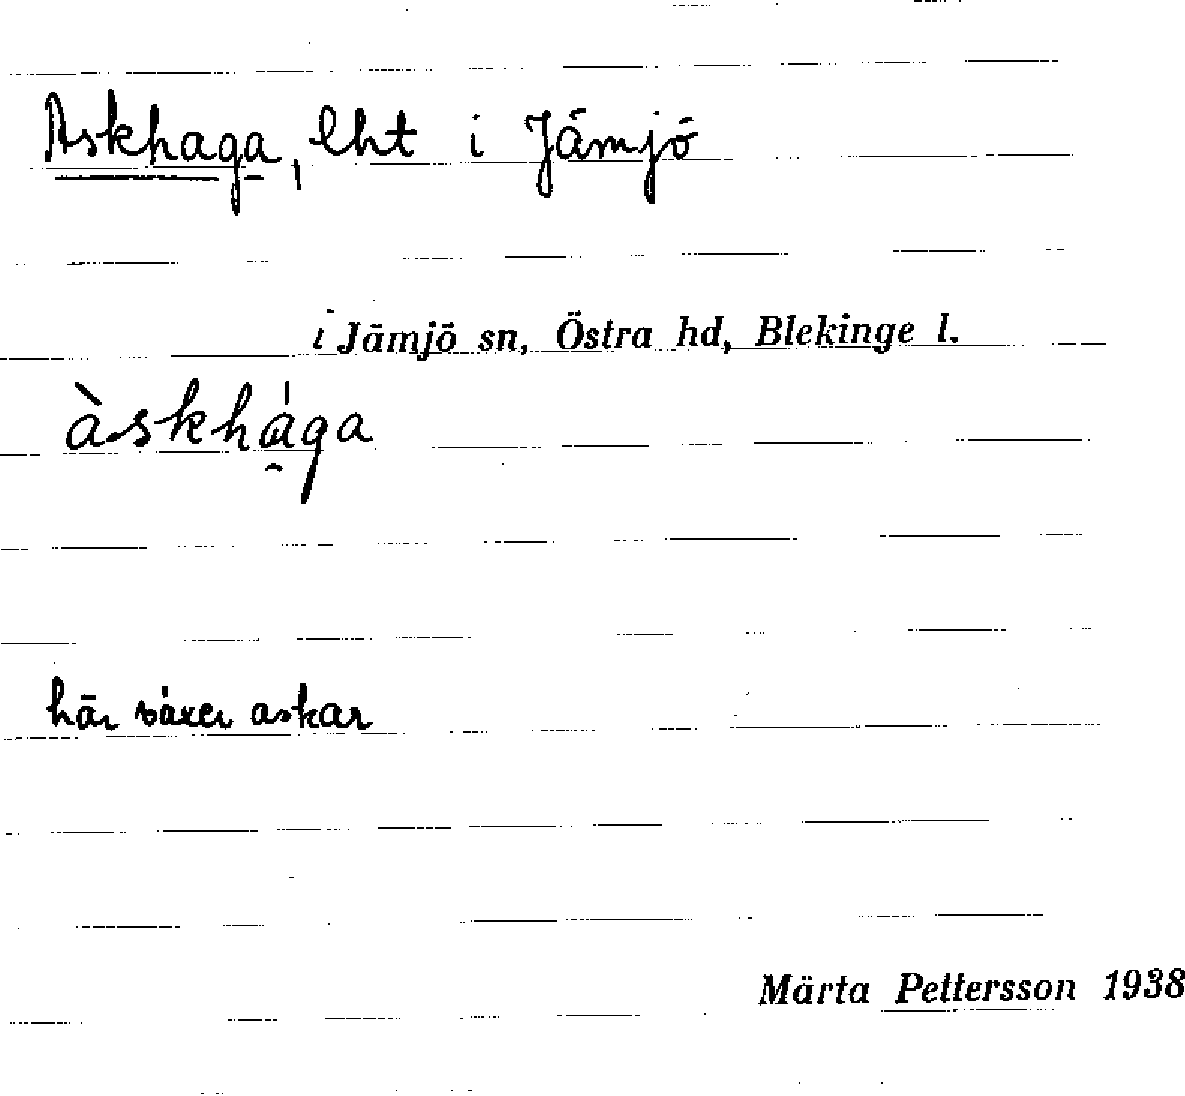 Askhaga, lht i Jämjö
i Jämjö sn, Östra hd, Blekinge l.
àskhá̯ga
här växer askar
Märta Pettersson 1938